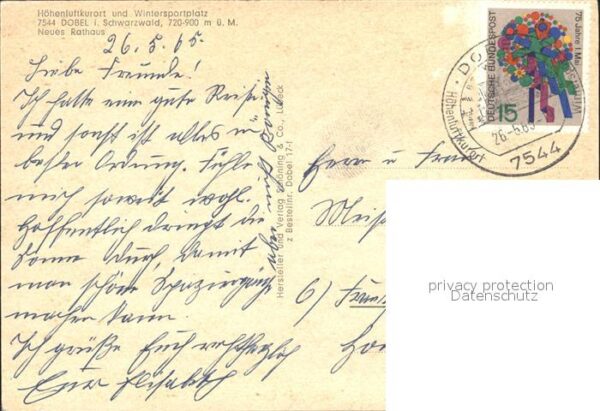 Höhenluftkurort und Wintersportplatz
7544 DOBEL i. Schwarzwald, 720-900 m ü. M.
Neues Rathaus
26.5.65.
Liebe Freunde!
Ich hatte eine gute Reise
und sonst ist alles in
bester Ordnung. Fühle
mich soweit wohl.
Hoffentlich dringt die
Sonne durch, damit
man schöne Spaziergänge
machen kann.
Ich grüße Euch recht herzlich
Eure Elisabeth
Hersteller und Verlag Schöning & Co., Lübeck
z Bestellnr. Dobel 17
Herrn u
6)
75 Jahre 1. Mai
DEUTSCHE BUNDESPOST
15
Höhenluftkurort
7544
privacy protection
Datenschutz